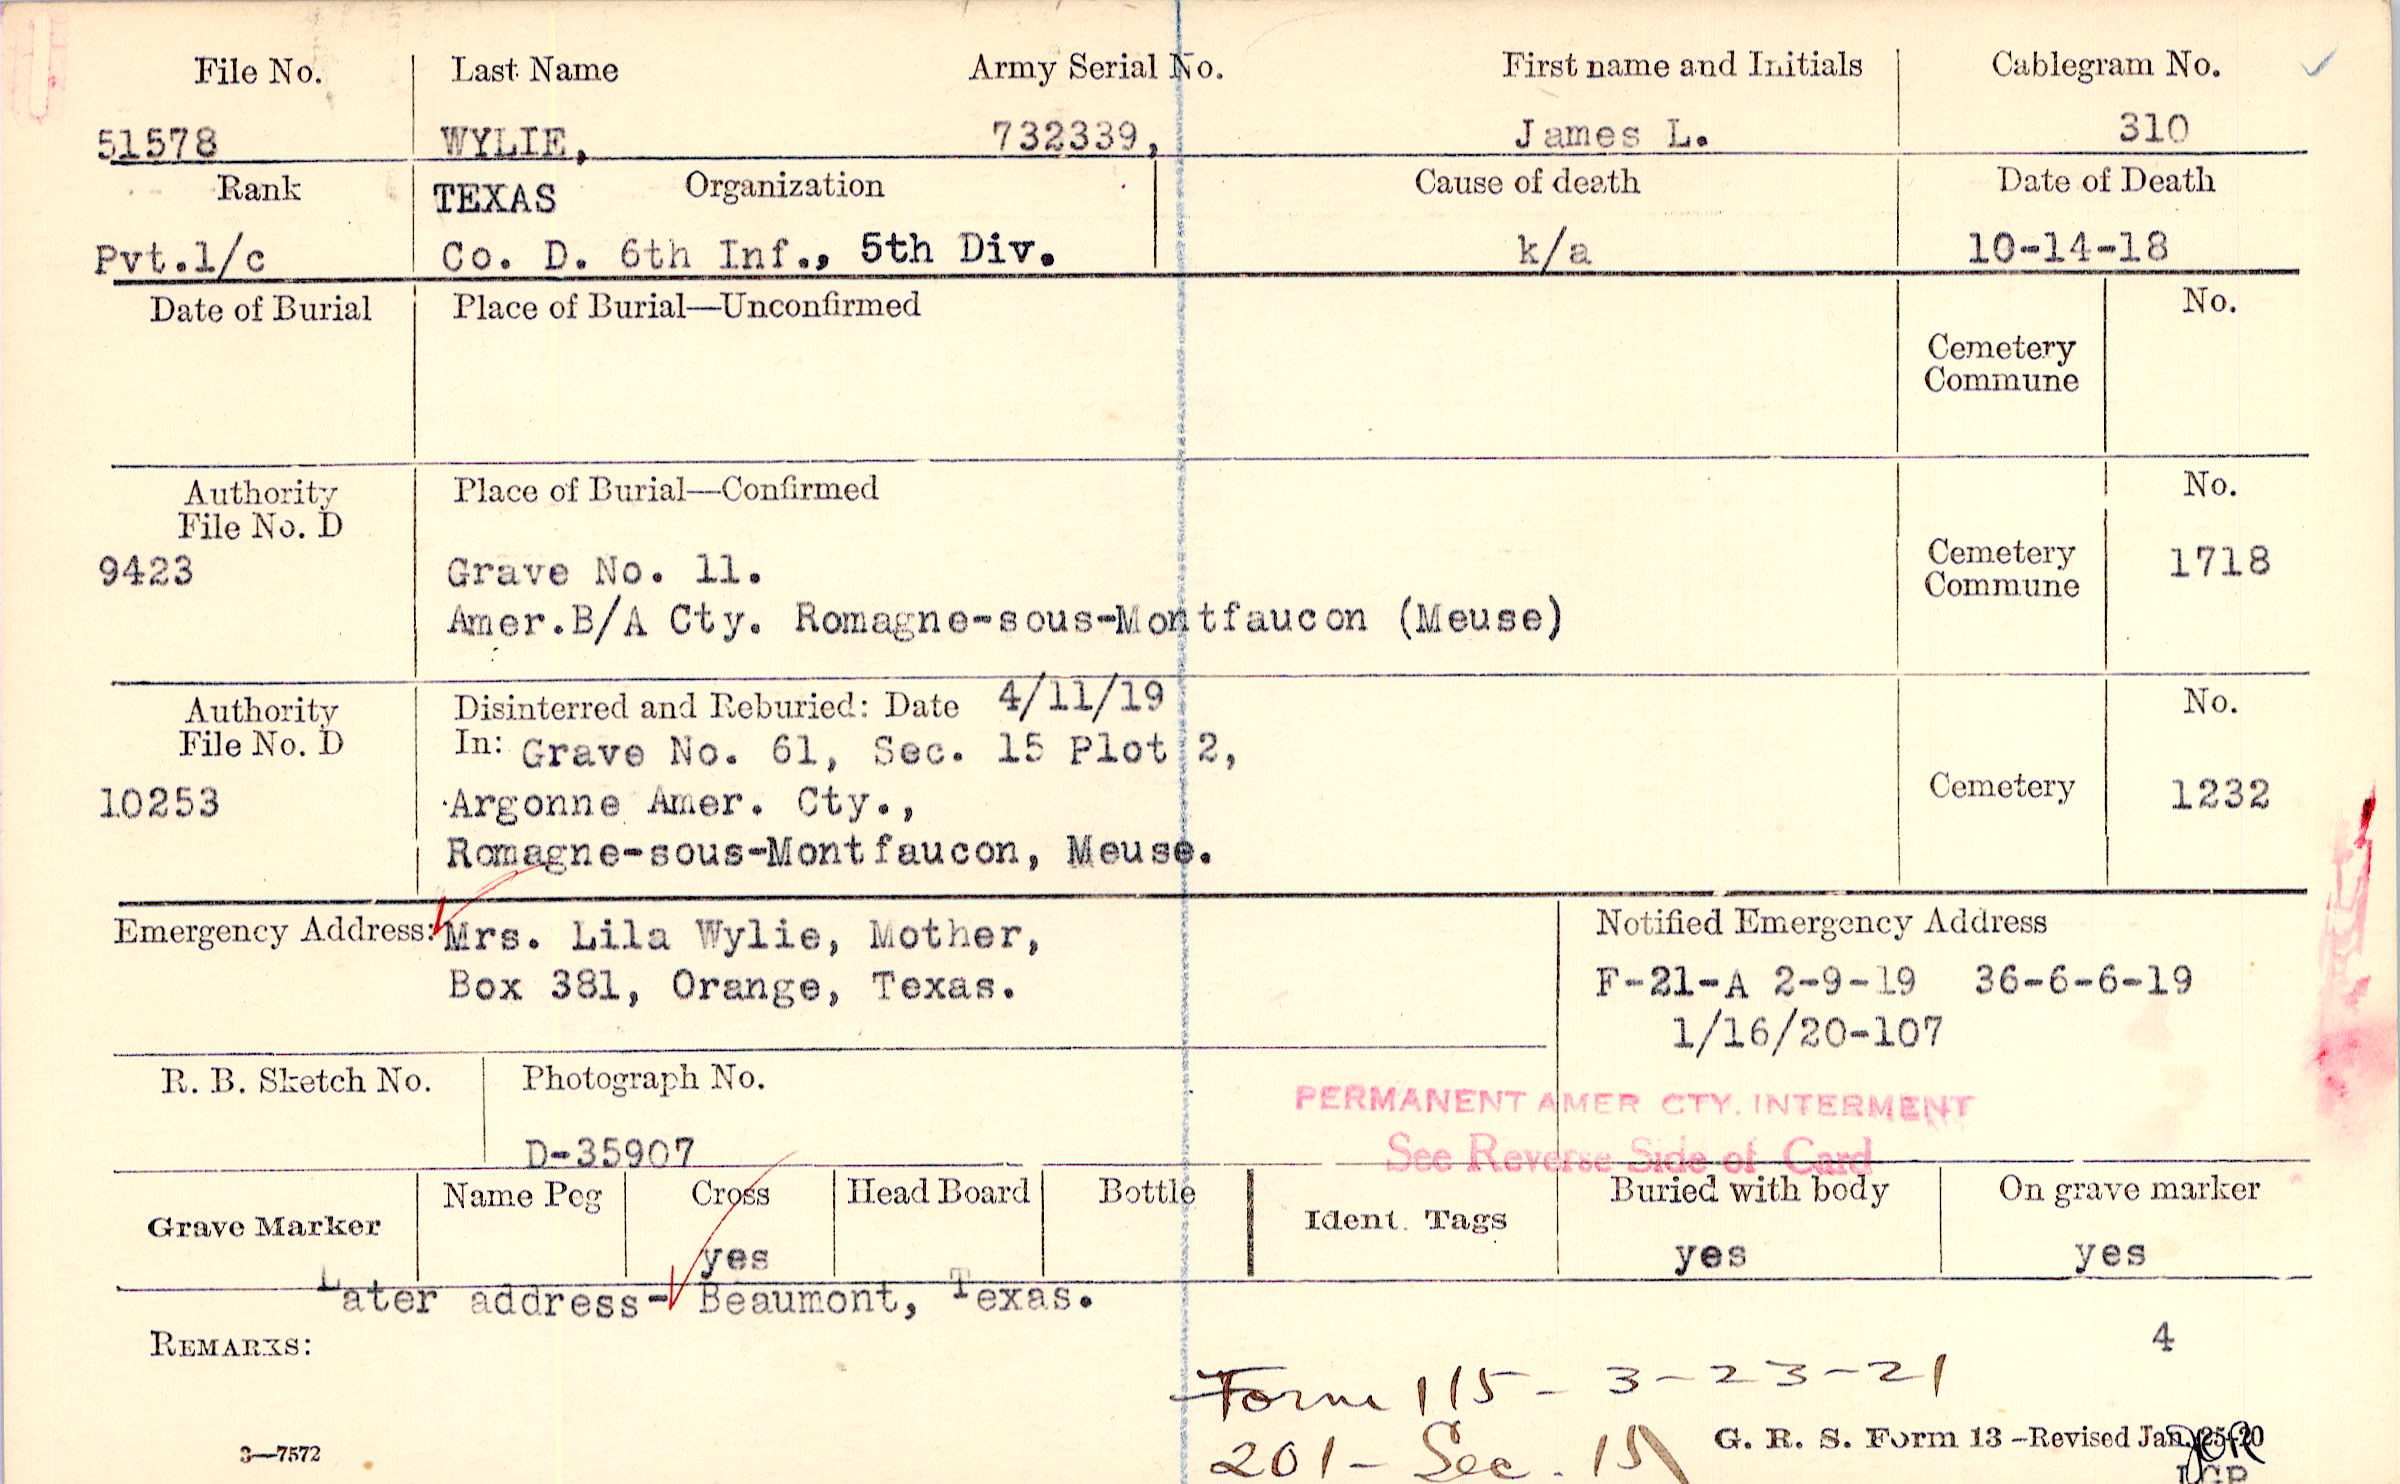 File No. Last Name Army Serial No. First name and Initials Cablegram No.
51578 WYLIE, 732339, James L. 310
Rank TEXAS Organization Cause of death Date of Death
Pvt.1/c Co. D. 6th Inf., 5th Div. k/a 10-14-18
Date of Burial Place of Burial—Unconfirmed No.
Cemetery
Commune
Authority Place of Burial—Confirmed No.
File No. D
9423 Grave No. 11. Cemetery 1718
Commune
Amer.B/A Cty. Romagne-sous-Montfaucon (Meuse)
Authority Disinterred and Reburied: Date 4/11/19 No.
File No. D In: Grave No. 61, Sec. 15 Plot 2,
10253 Argonne Amer. Cty., Cemetery 1232
Romagne-sous-Montfaucon, Meuse.
Emergency Address: Mrs. Lila Wylie, Mother, Notified Emergency Address
Box 381, Orange, Texas. F-21-A 2-9-19 36-6-6-19
1/16/20-107
R. B. Sketch No. Photograph No.
PERMANENT AMER CTY. INTERMENT
D-35907 See Reverse Side of Card
Grave Marker Name Peg Cross Head Board Bottle Ident. Tags Buried with body On grave marker
yes yes yes
Later address- Beaumont, Texas.
REMARKS: 4
Form 115 - 3-23-21
201 - Sec. 15
3—7572 G. R. S. Form 13 —Revised Jan. 25-20